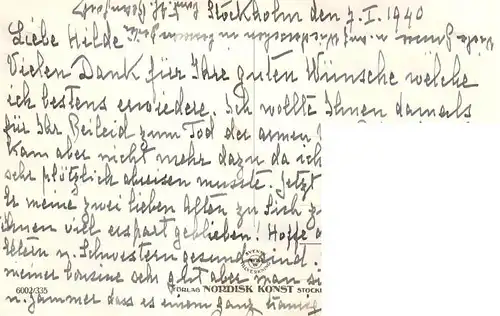 Stockholm den 7.I.1940
Liebe Hilde
Vielen Dank für Ihre guten Wünsche welche
ich bestens erwiedere. Ich wollte Ihnen damals
für Ihr Beileid zum Tod der armen
kam aber nicht mehr dazu da ich
sehr plötzlich abreisen musste. Jetzt
meine zwei lieben Alten zu sich
Ihnen viel erspart geblieben! Hoffe
Eltern u. Schwestern gesund sind.
meiner sehr geht aber man
u. Jammer dass es einem ganz
6002/335
FÖRLAG NORDISK KONST STOCK